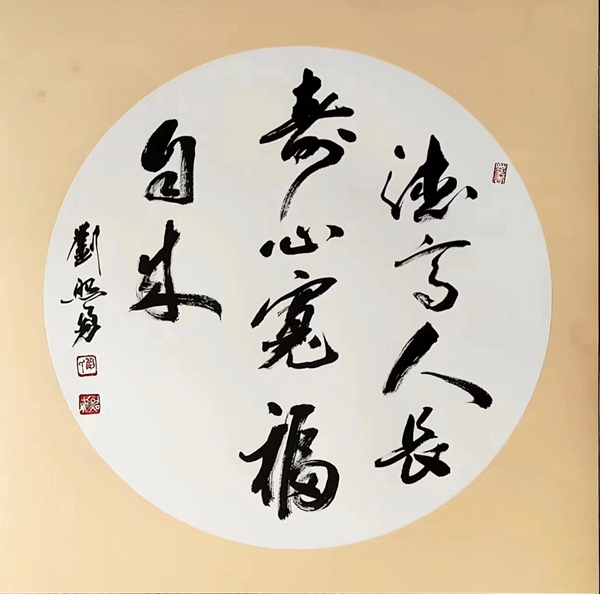 德高人长
寿心宽福
自来
劉